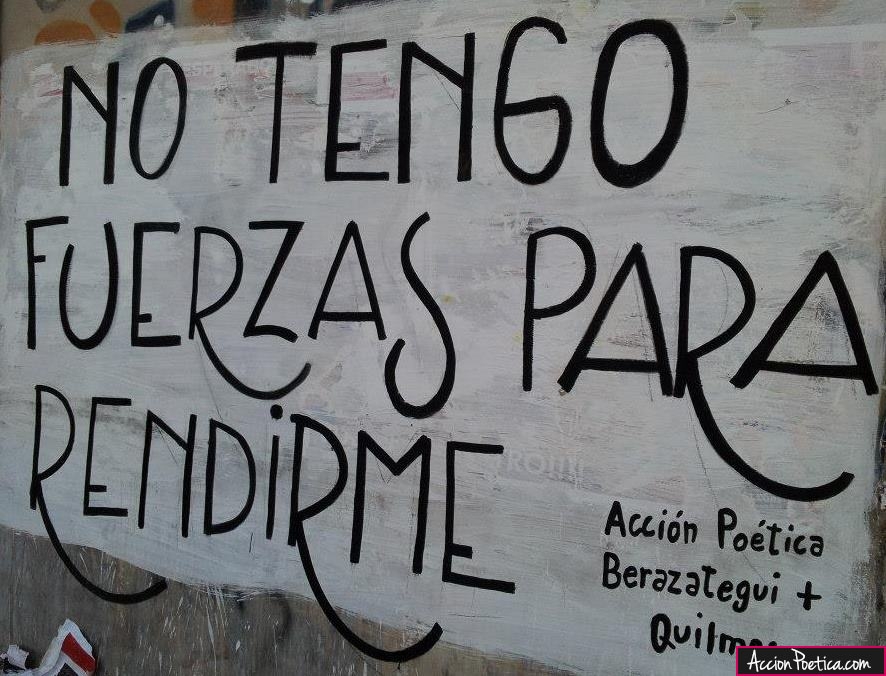 NO TENGO
FUERZAS PARA
RENDIRME
Acción Poética
Berazategui +
AccionPoetica.com